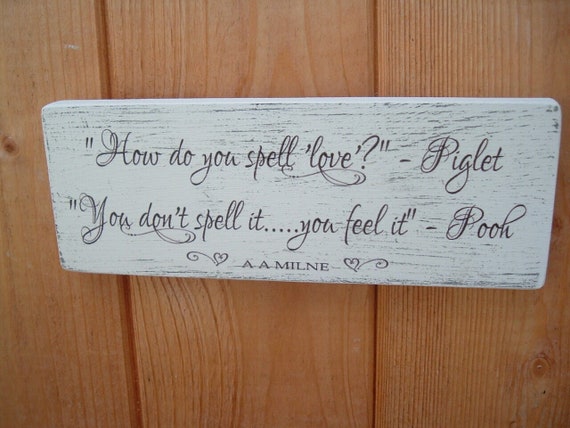 "How do you spell 'love'?" - Piglet
"You don't spell it.....you feel it" - Pooh
A A MILNE